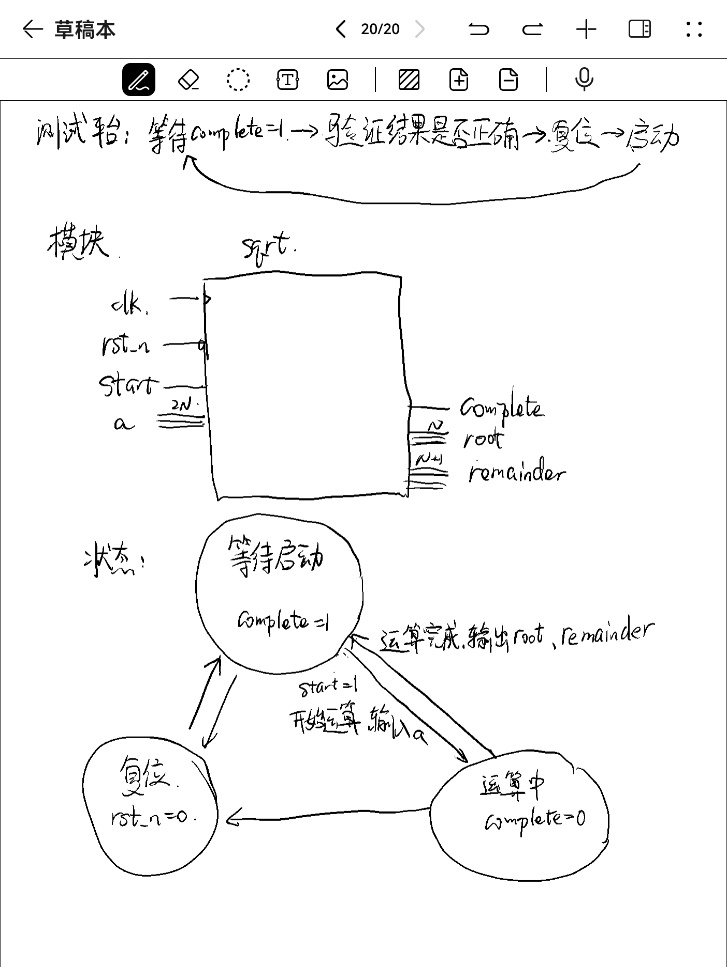 草稿本
20/20
测试平台：等待complete=1→验证结果是否正确→复位→启动
模块
sqrt.
clk.
rst_n
start
2N
a
complete
N
root
N+1
remainder
状态：
等待启动
complete=1
运算完成.输出root、remainder
start=1
开始运算.输入a
复位.
rst_n=0.
运算中
complete=0